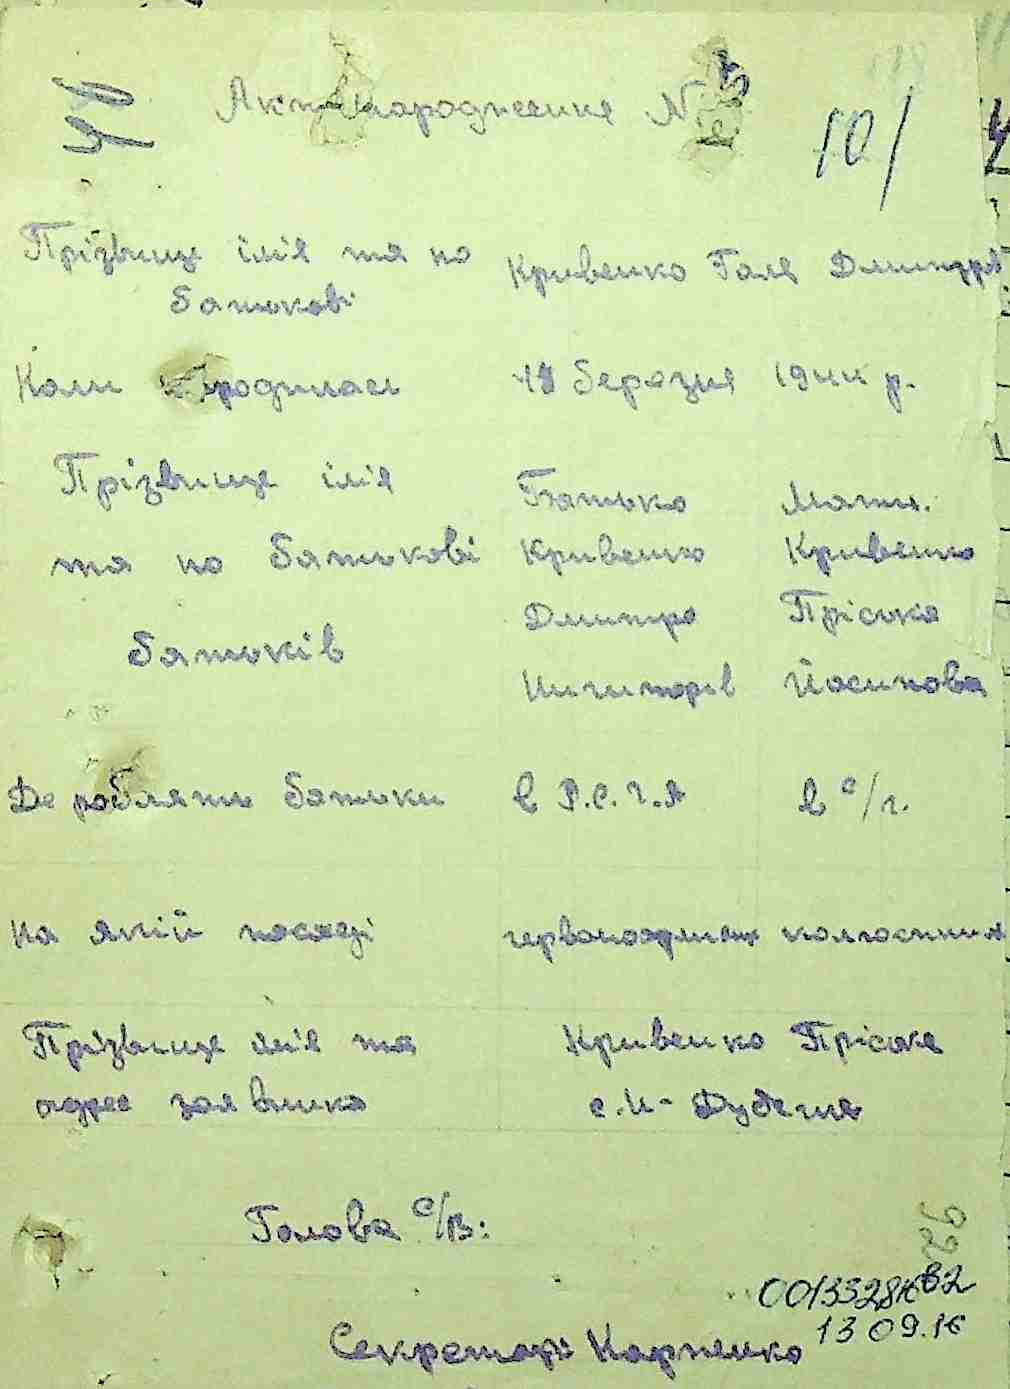 Акт народження №
10/
Прізвище ім'я та по Кривенко Галя Дмитрів
батькові
Коли народилась 18 березня 1944 р.
Прізвище ім'я Батько Мати.
та по батькові Кривенко Кривенко
Дмитро Пріська
батьків
Ничипорів Йосипова
Де роблять батьки в Р.С.Ч.А в с/г.
на якій посаді червоноармієць колгоспник
Прізвище ім'я та Кривенко Пріська
адрес заявника с. Н-Дубечня
Голова с/в:
92
13 09.16
Секретарь Карпенко